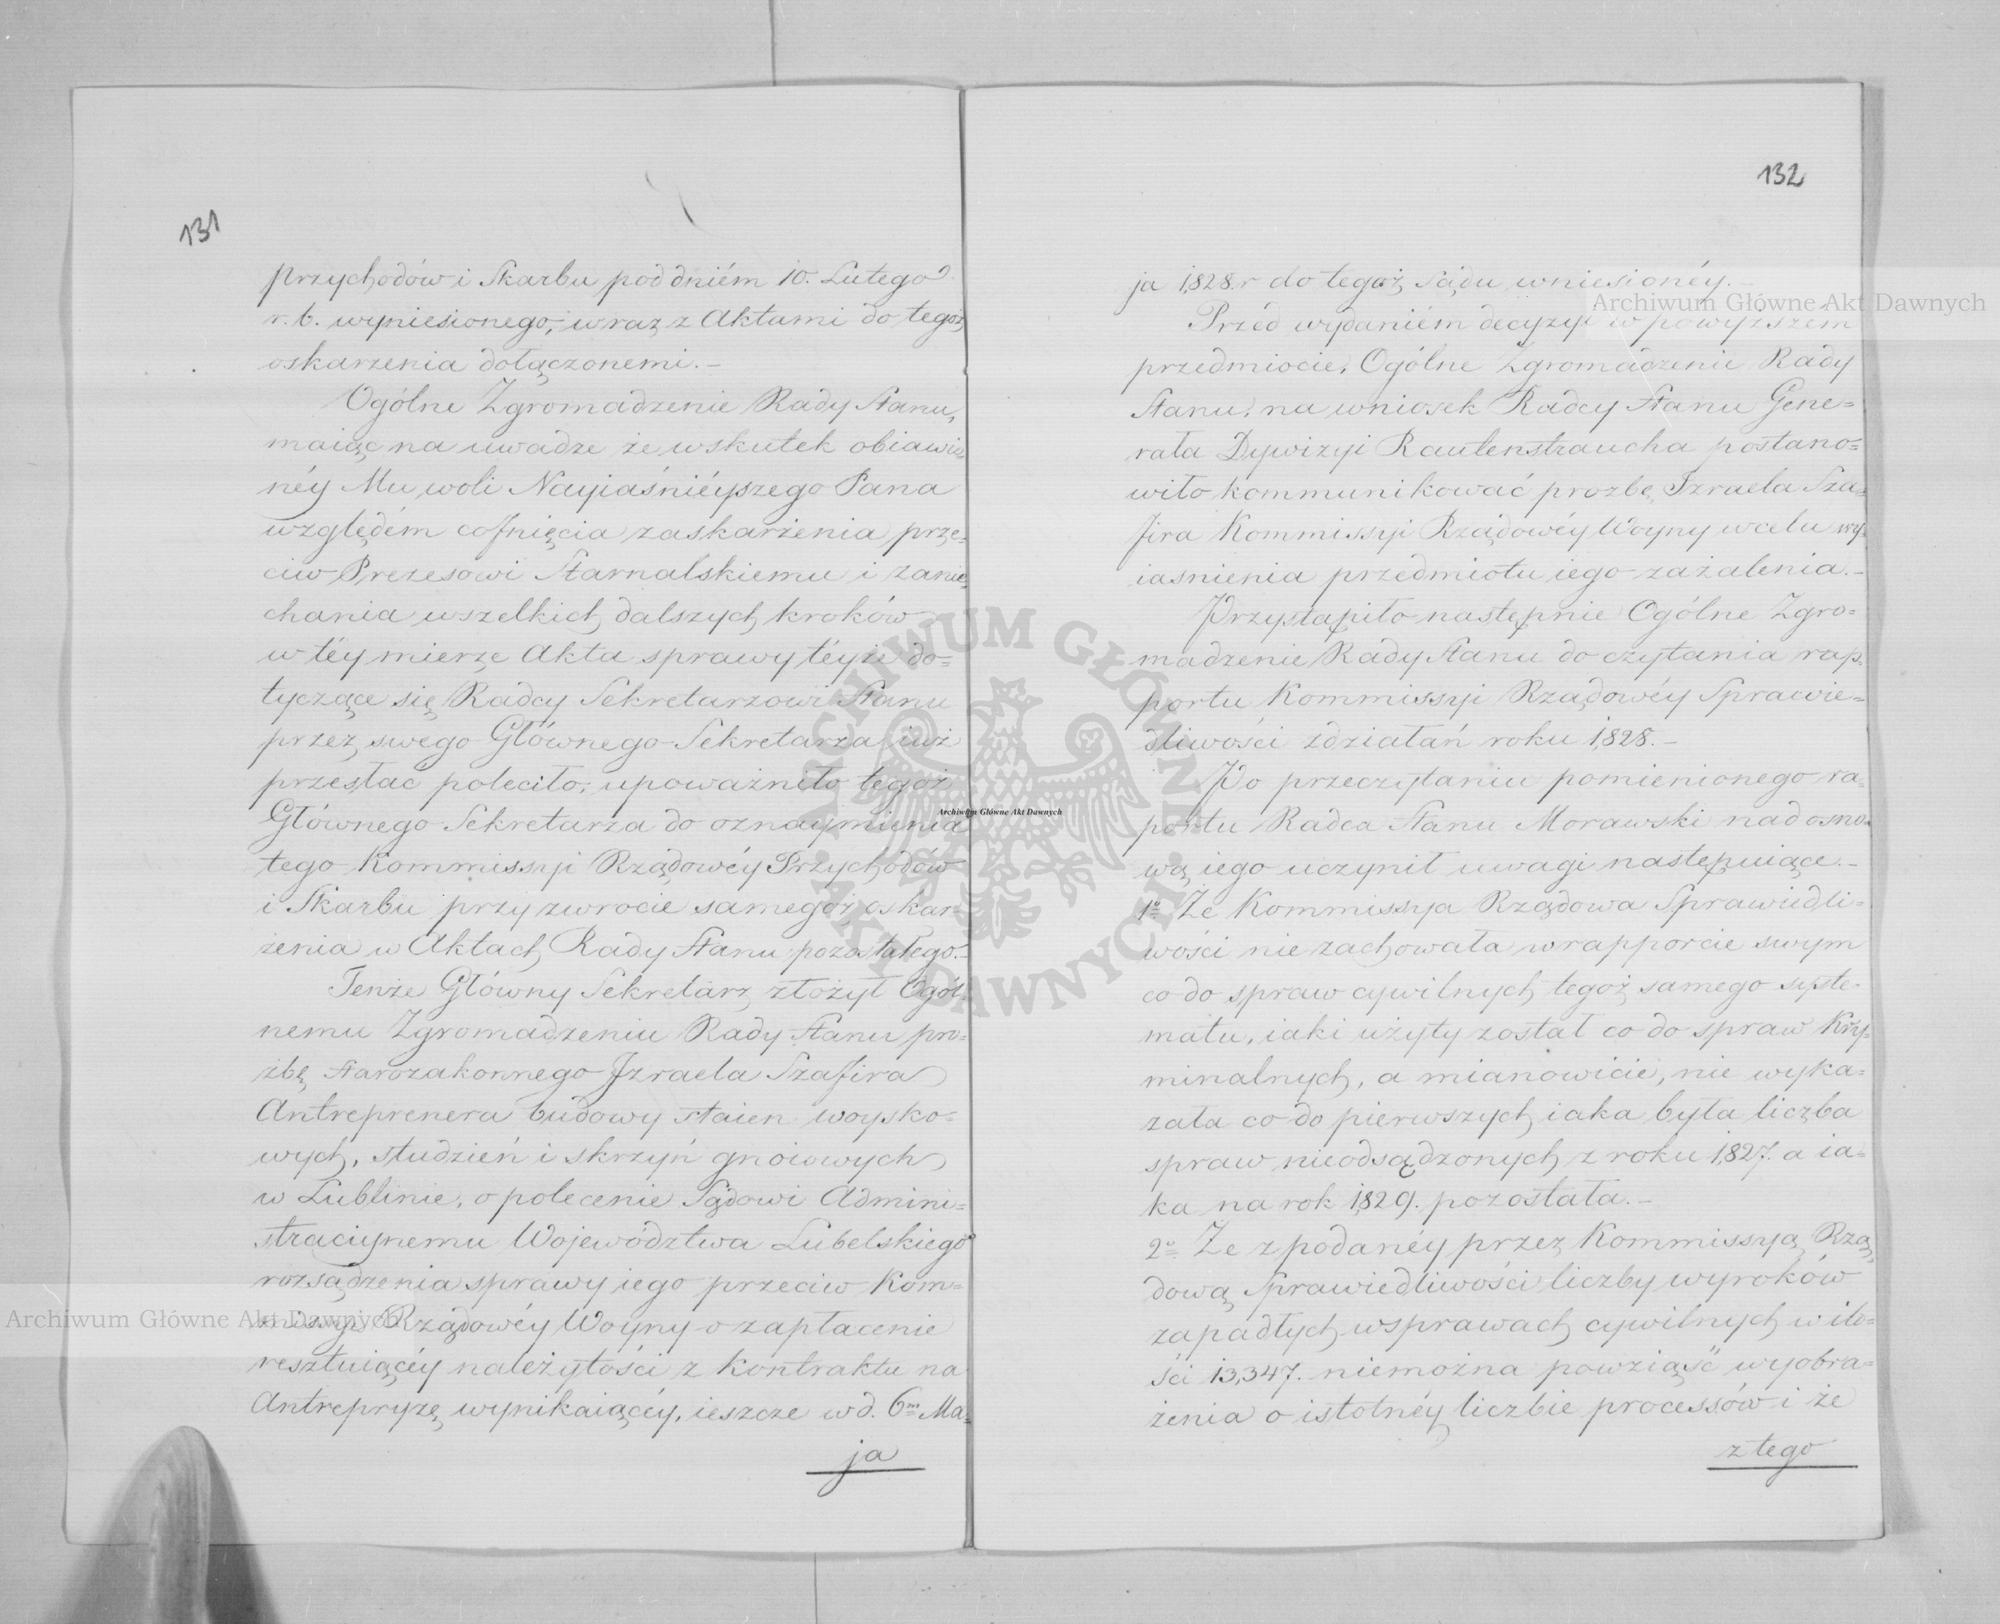 131
przychodów i Skarbu pod dniém 10. Lutego
r. b. wyniesionego, wraz z Aktami do tegoż
oskarzenia dołączonemi.–
Ogólne Zgromadzenie Rady Stanu,
maiąc na uwadze że wskutek obiawio=
néy Mu woli Nayiaśniéyszego Pana
względém cofnięcia zaskarżenia prze=
ciw Prezesowi Starnalskiemu i zanie=
chania wszelkich dalszych kroków
w téy mierze Akta sprawy téyże do=
tyczące się Radcy Sekretarzowi Stanu
przez swego Głównego Sekretarza iuż
przesłać poleciło; upoważniło tegoż
Głównego Sekretarza do oznaymienia
tego Kommissyi Rządowéy Przychodów
i Skarbu przy zwrocie samegoż oskar=
żenia w Aktach Rady Stanu pozostałego.–
Tenże Główny Sekretarz złożył Ogól=
nemu Zgromadzeniu Rady Stanu pro=
zbę starozakonnego Izraela Szafira
Antreprenera budowy staien woysko=
wych, studzień i skrzyń gnoiowych
w Lublinie, o polecenie Sądowi Admini=
stracyjnemu Województwa Lubelskiego
rozsądzenia sprawy iego przeciw Kom=
missyi Rządowéy Woyny o zapłacenie
resztuiącéy należytości z kontraktu na
Antrepryzę wynikaiącéy, ieszcze w d. 6m Ma=
ja
132
ja 1828. r do tegoż Sądu wniesionéy.–
Przed wydaniém decyzyi w powyższém
przedmiocie, Ogólne Zgromadzenie Rady
Stanu, na wniosek Radcy Stanu Gene=
rała Dywizyi Rautenstraucha postano=
wiło kommunikować prozbę Izraela Sza=
fira Kommissyi Rządowéy Woyny w celu wy=
iasnienia przedmiotu iego zażalenia.–
Przystąpiło następnie Ogólne Zgro=
madzenie Rady Stanu do czytania rap=
portu Kommissyi Rządowéy Sprawie=
dliwości z działań roku 1828.–
Po przeczytaniu pomienionego ra=
portu Radca Stanu Morawski nad osno=
wą iego uczynił uwagi następuiące.–
1o Że Kommissya Rządowa Sprawiedli=
wości nie zachowała w rapporcie swym
co do spraw cywilnych tegoż samego syste=
matu, iaki użyty został co do spraw Kry=
minalnych, a mianowicie, nie wyka=
zała co do pierwszych iaka była liczba
spraw nieodsądzonych z roku 1827. a ia=
ka na rok 1829. pozostała.–
2o Że z podanéy przez Kommissyą Rzą=
dową Sprawiedliwości liczby wyroków
zapadłych w sprawach cywilnych w ilo=
ści 13,347. niemożna powziąść wyobra=
żenia o istotnéy liczbie processów i że
z tego
Archiwum Główne Akt Dawnych
Archiwum Główne Akt Dawnych
Archiwum Główne Akt Dawnych
ARCHIWUM GŁÓWNE AKT DAWNYCH